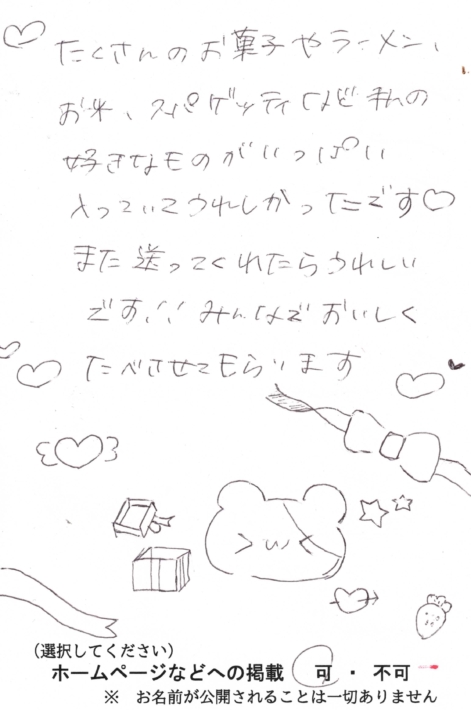 たくさんのお菓子やラーメン、
お米、スパゲッティなど私の
好きなものがいっぱい
入っていてうれしかったです♡
また送ってくれたらうれしい
です!! みんなでおいしく
たべさせてもらいます
(選択してください)
ホームページなどへの掲載 可 ・ 不可
※ お名前が公開されることは一切ありません